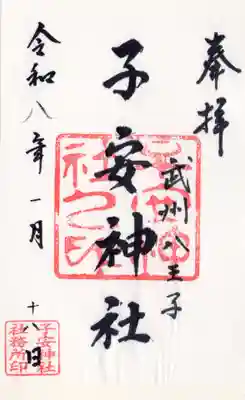 奉拝
武州八王子
子安神社
令和八年一月十八日
子安神社
社務所印